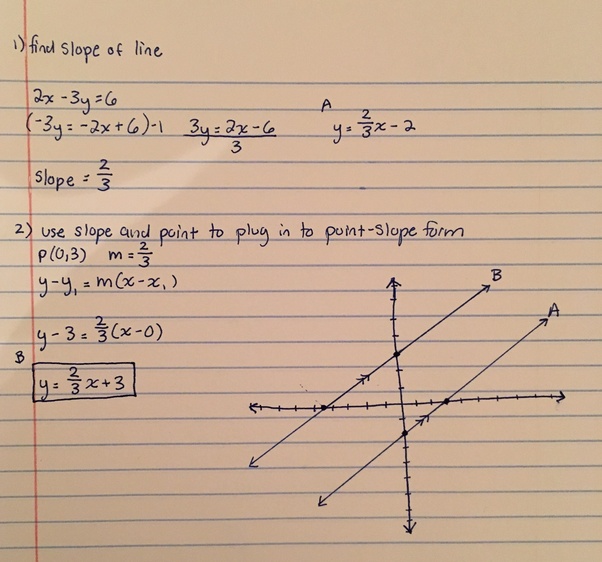 1) find slope of line
2x - 3y = 6
(-3y = -2x + 6) -1 3y = 2x - 6 / 3 A y = 2/3 x - 2
slope = 2/3
2) use slope and point to plug in to point-slope form
P(0,3) m = 2/3
y - y₁ = m(x - x₁)
B
A
y - 3 = 2/3 (x - 0)
B
y = 2/3 x + 3